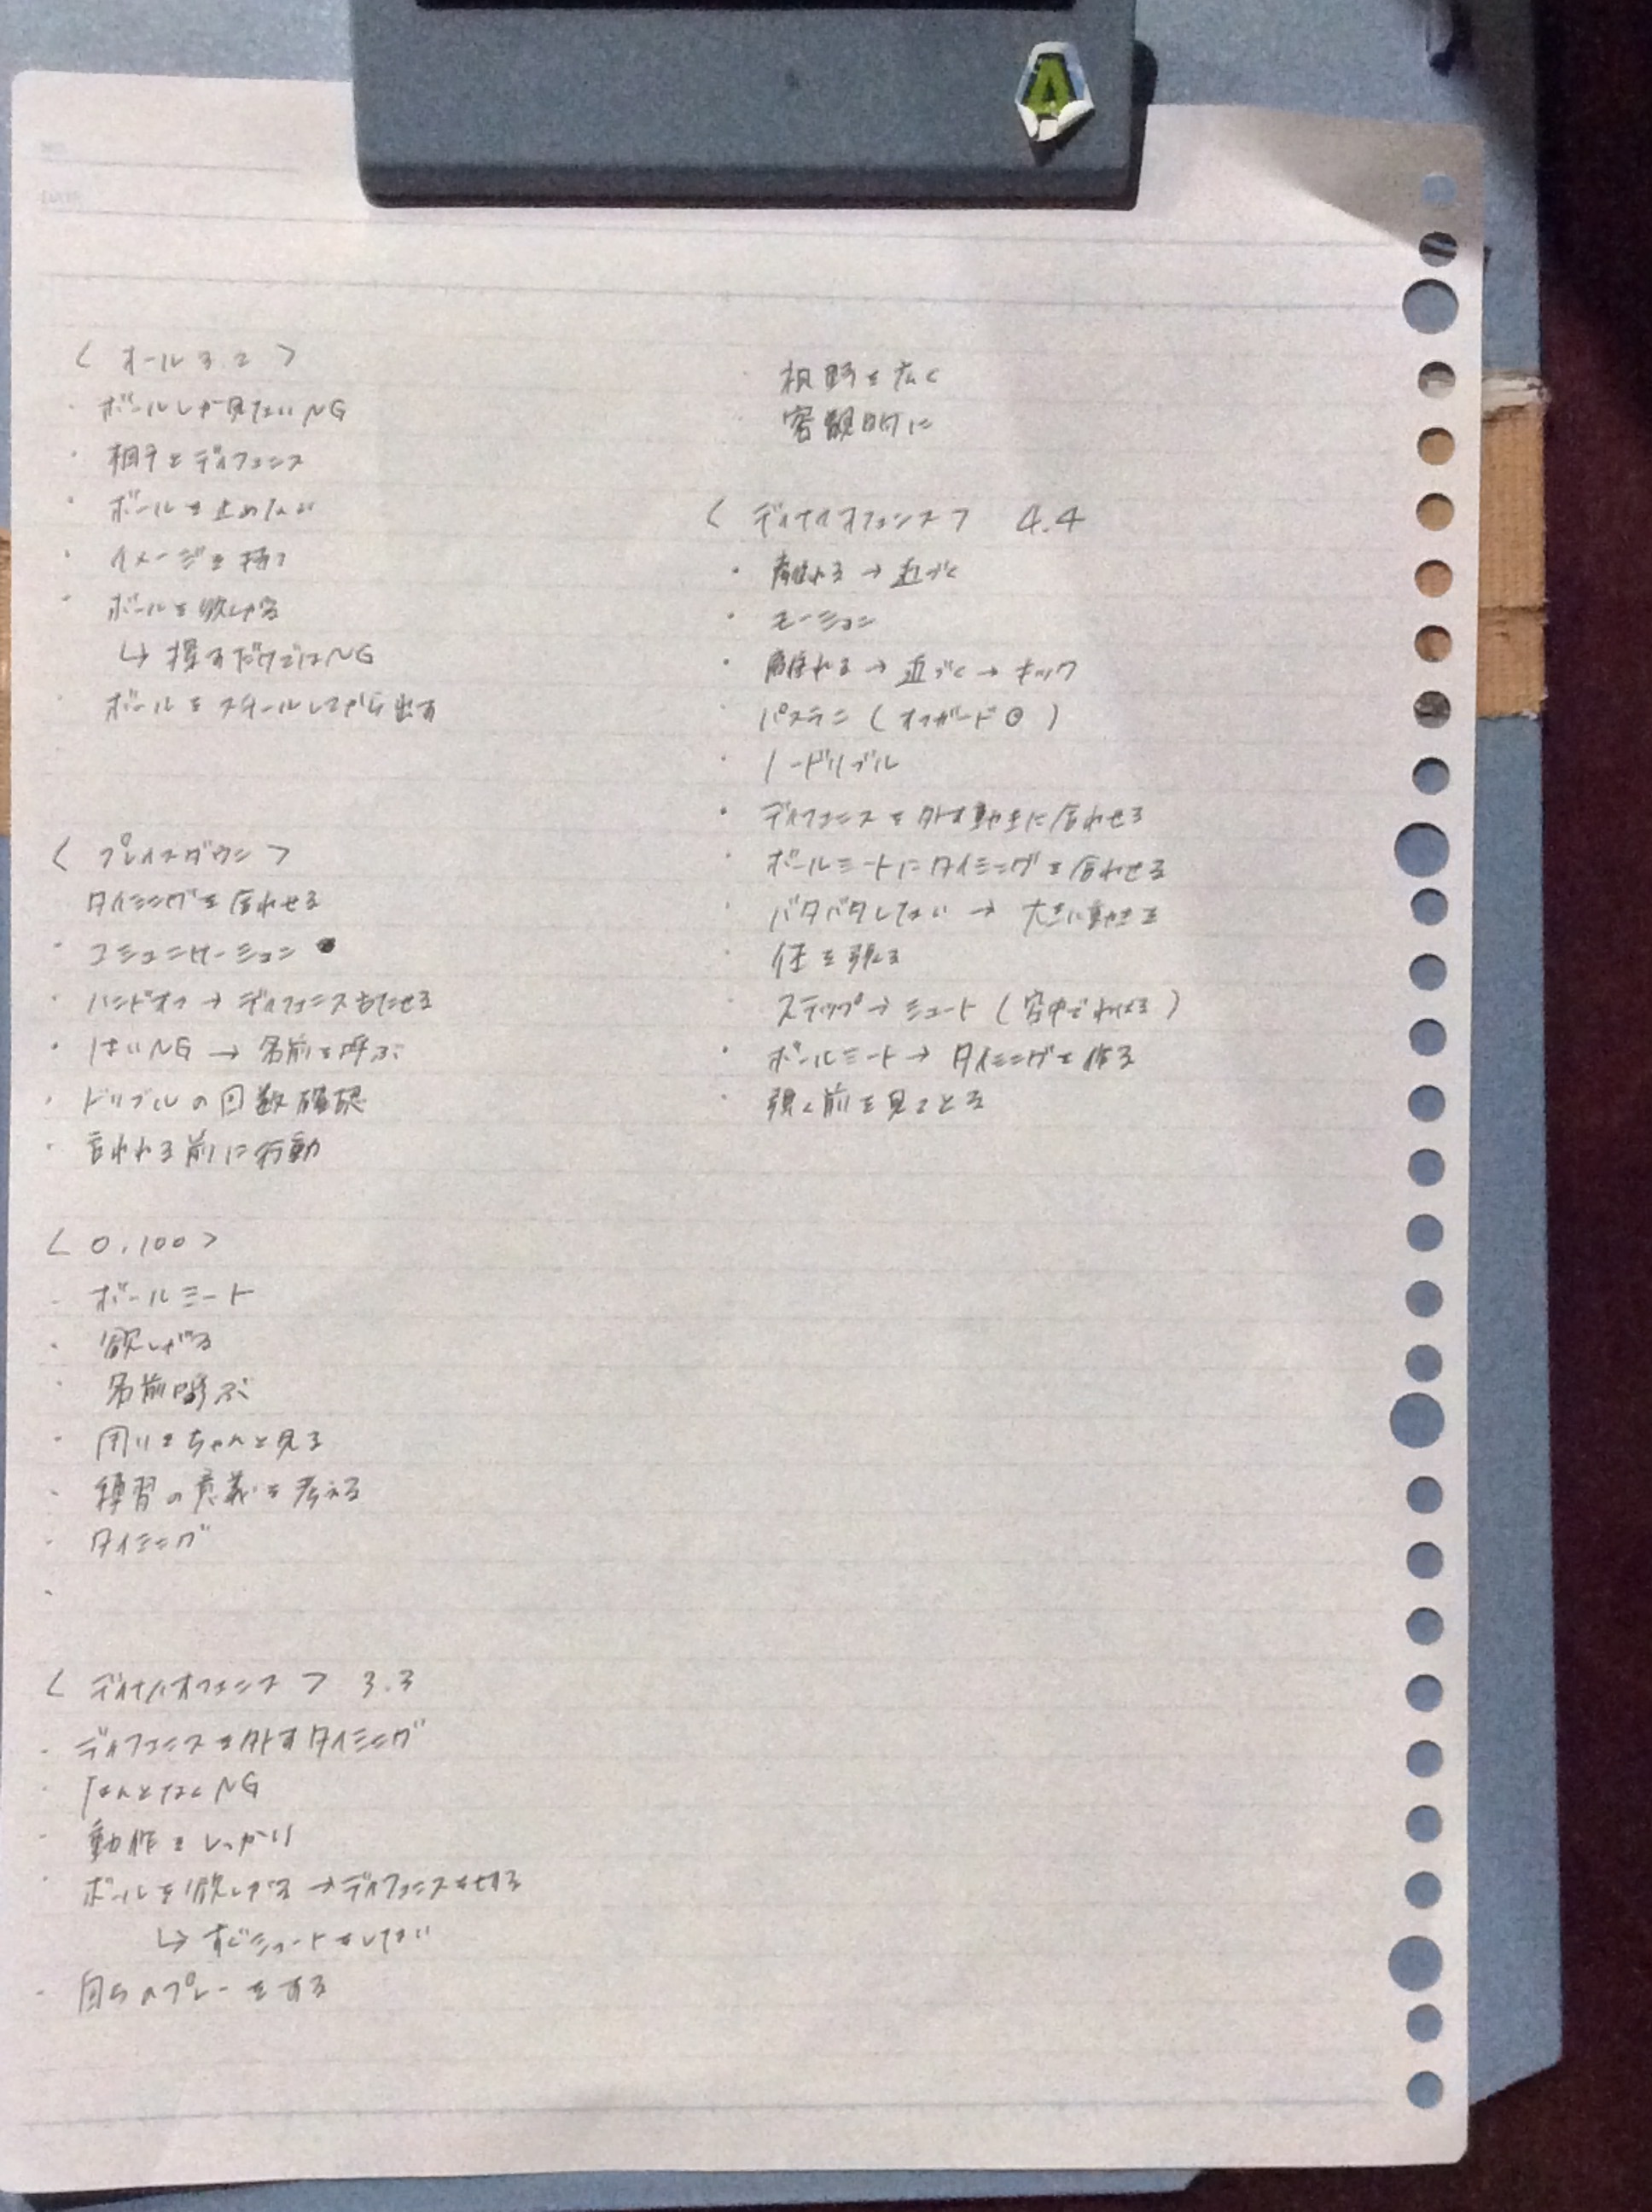 A
< オール3.2 >
・ボールしか見ないNG
・相手とディフェンス
・ボールを止めない
・イメージを持つ
・ボールを欲しがる
↳ 探すだけではNG
・ボールをスチールしてから出す
< プレイスダウン >
タイミングを合わせる
・コミュニケーション
・ハンドオフ → ディフェンスもたせる
・はいNG → 名前を呼ぶ
・ドリブルの回数確認
・言われる前に行動
< 0,100 >
・ボールミート
・欲しがる
・名前呼ぶ
・周りをちゃんと見る
・練習の意義を考える
・タイミング
・
< ディナイオフェンス > 3.3
・ディフェンスを外すタイミング
・なんとなくNG
・動作をしっかり
・ボールを欲しがる → ディフェンスをする
↳ すぐシュートをしない
・自らのプレーをする
・視野を広く
・客観的に
< ディナイオフェンス > 4.4
・離れる → 近づく
・モーション
・離れる → 近づく → キック
・パスラン ( オフガード◎ )
・ノードリブル
・ディフェンスを外す動きに合わせる
・ボールミートにタイミングを合わせる
・バタバタしない → 大きい動きを
・体を張る
・ステップ → シュート ( 空中で )
・ボールミート → タイミングを作る
・強く前を見てとる